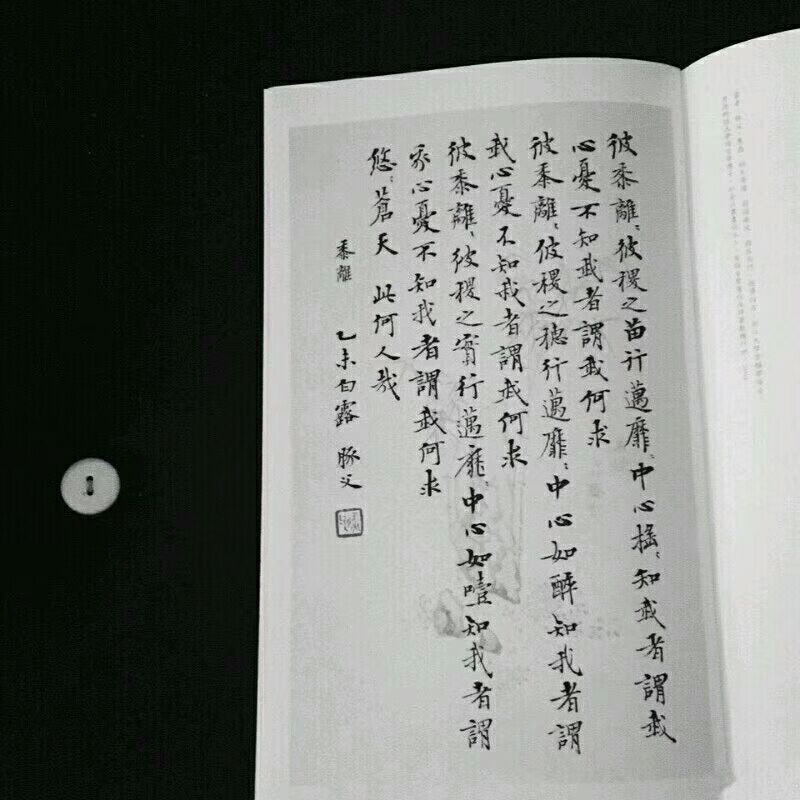 彼黍離〻彼稷之苗行邁靡〻中心摇〻知我者謂我
心憂不知我者謂我何求
彼黍離〻彼稷之穗行邁靡〻中心如醉知我者謂
我心憂不知我者謂我何求
彼黍離〻彼稷之實行邁靡〻中心如噎知我者謂
我心憂不知我者謂我何求
悠〻蒼天此何人哉
黍離 乙未白露 豚父